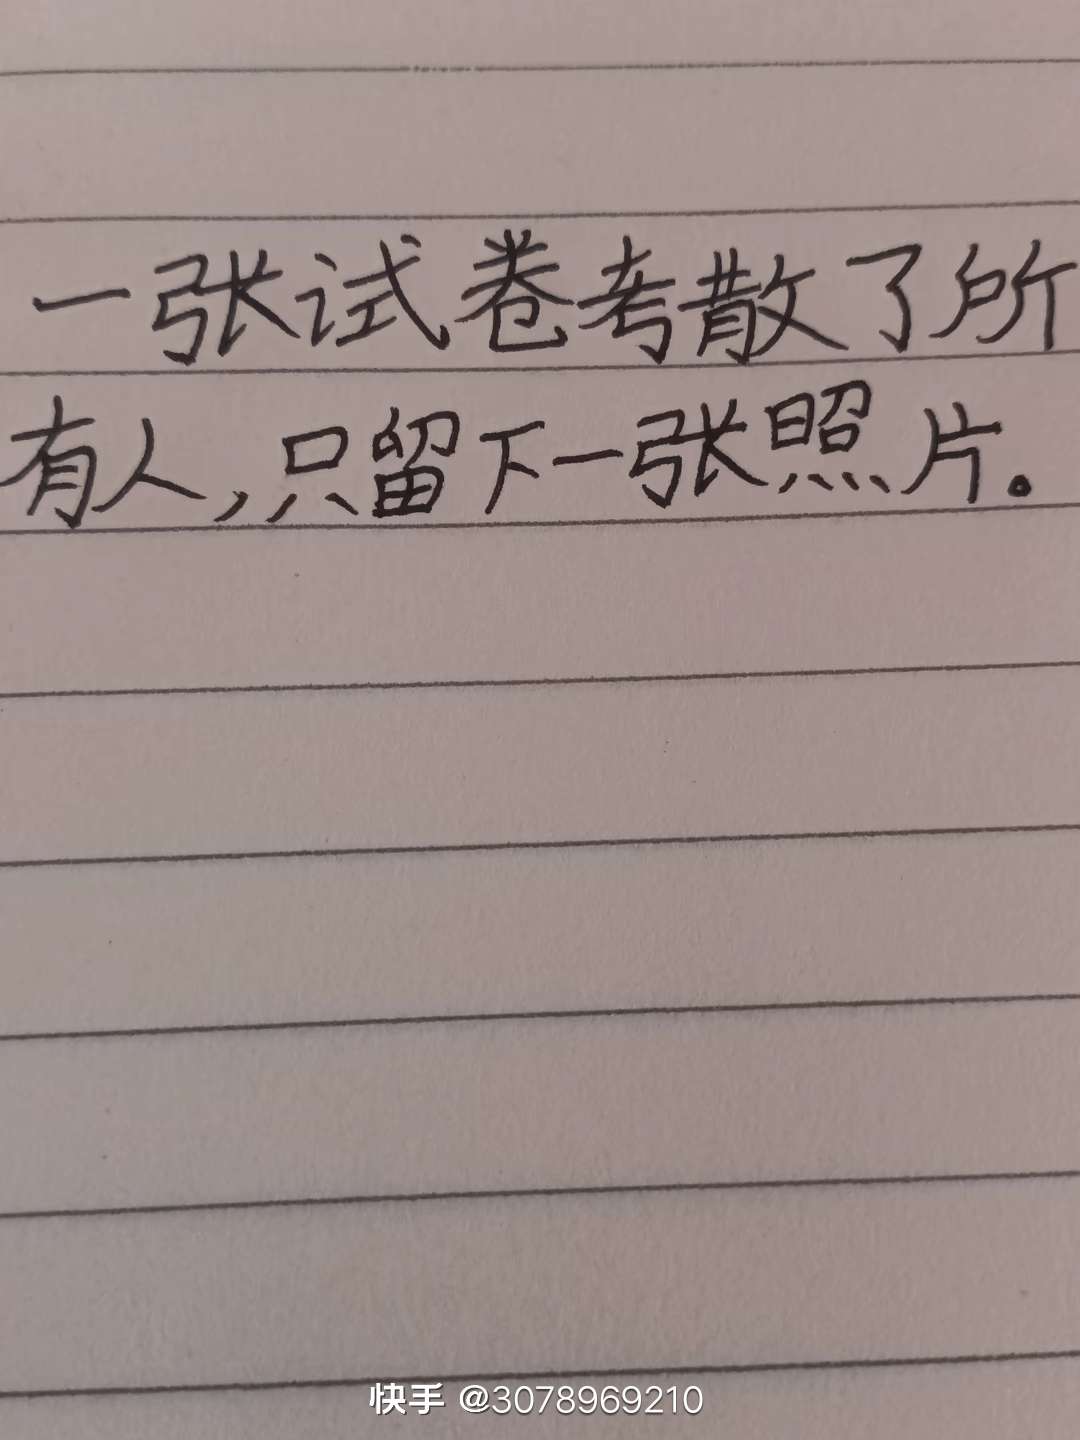 一张试卷考散了所
有人,只留下一张照片。
快手 @3078969210